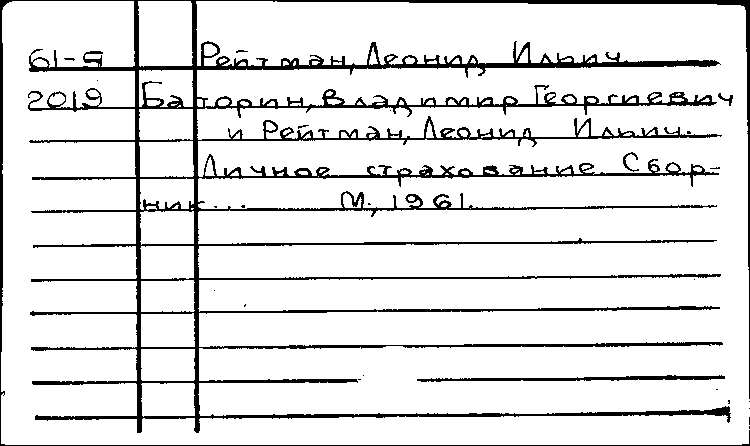 61-Я Рейтман, Леонид Ильич.
2019 Баторин, Владимир Георгиевич
и Рейтман, Леонид Ильич.
Личное страхование. Сбор-
ник... М., 1961.